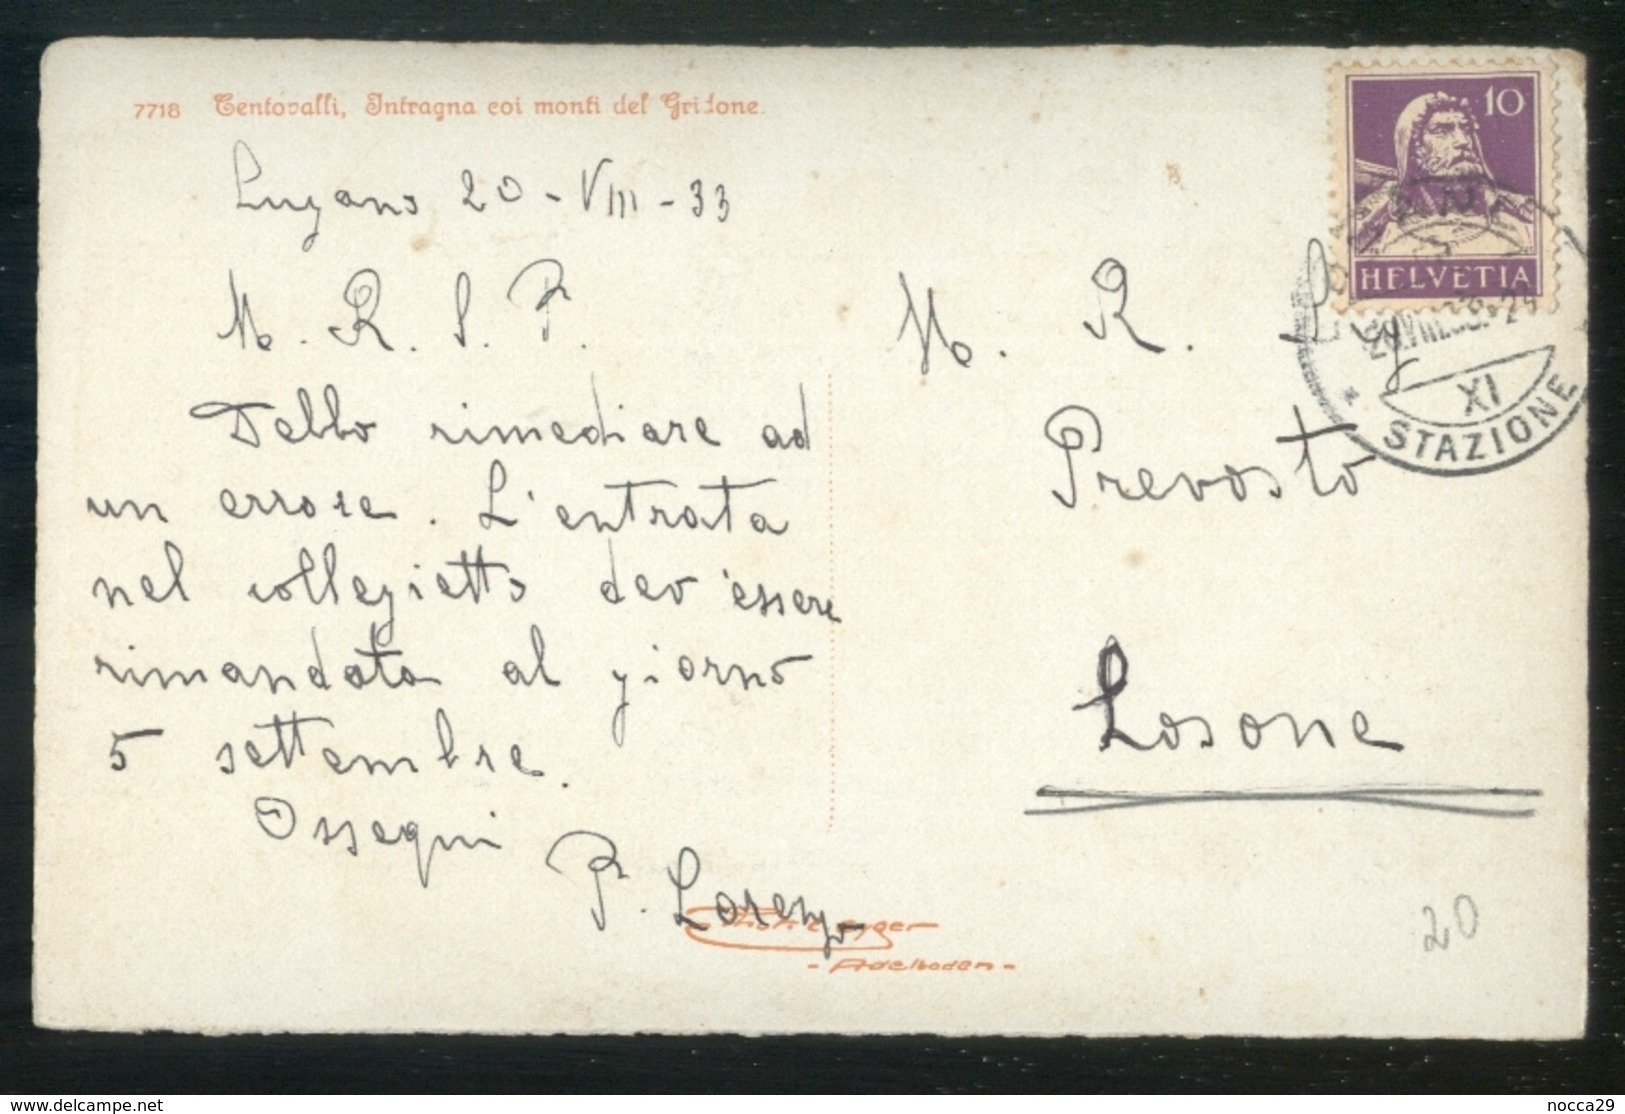 7718 Centovalli, Intragna coi monti del Gridone.
Lugano 20 - VIII - 33
M. R. S. P.
Debbo rimediare ad
un errore. L'entrata
nel collegietto dev'essere
rimandata al giorno
5 settembre.
Ossequi
P. Lorenzo
Phot. E. Gyger
- Adelboden -
10
HELVETIA
XI
STAZIONE
M. R. Sig
Prevosto
Losone
20
nocca29
delcampe.net